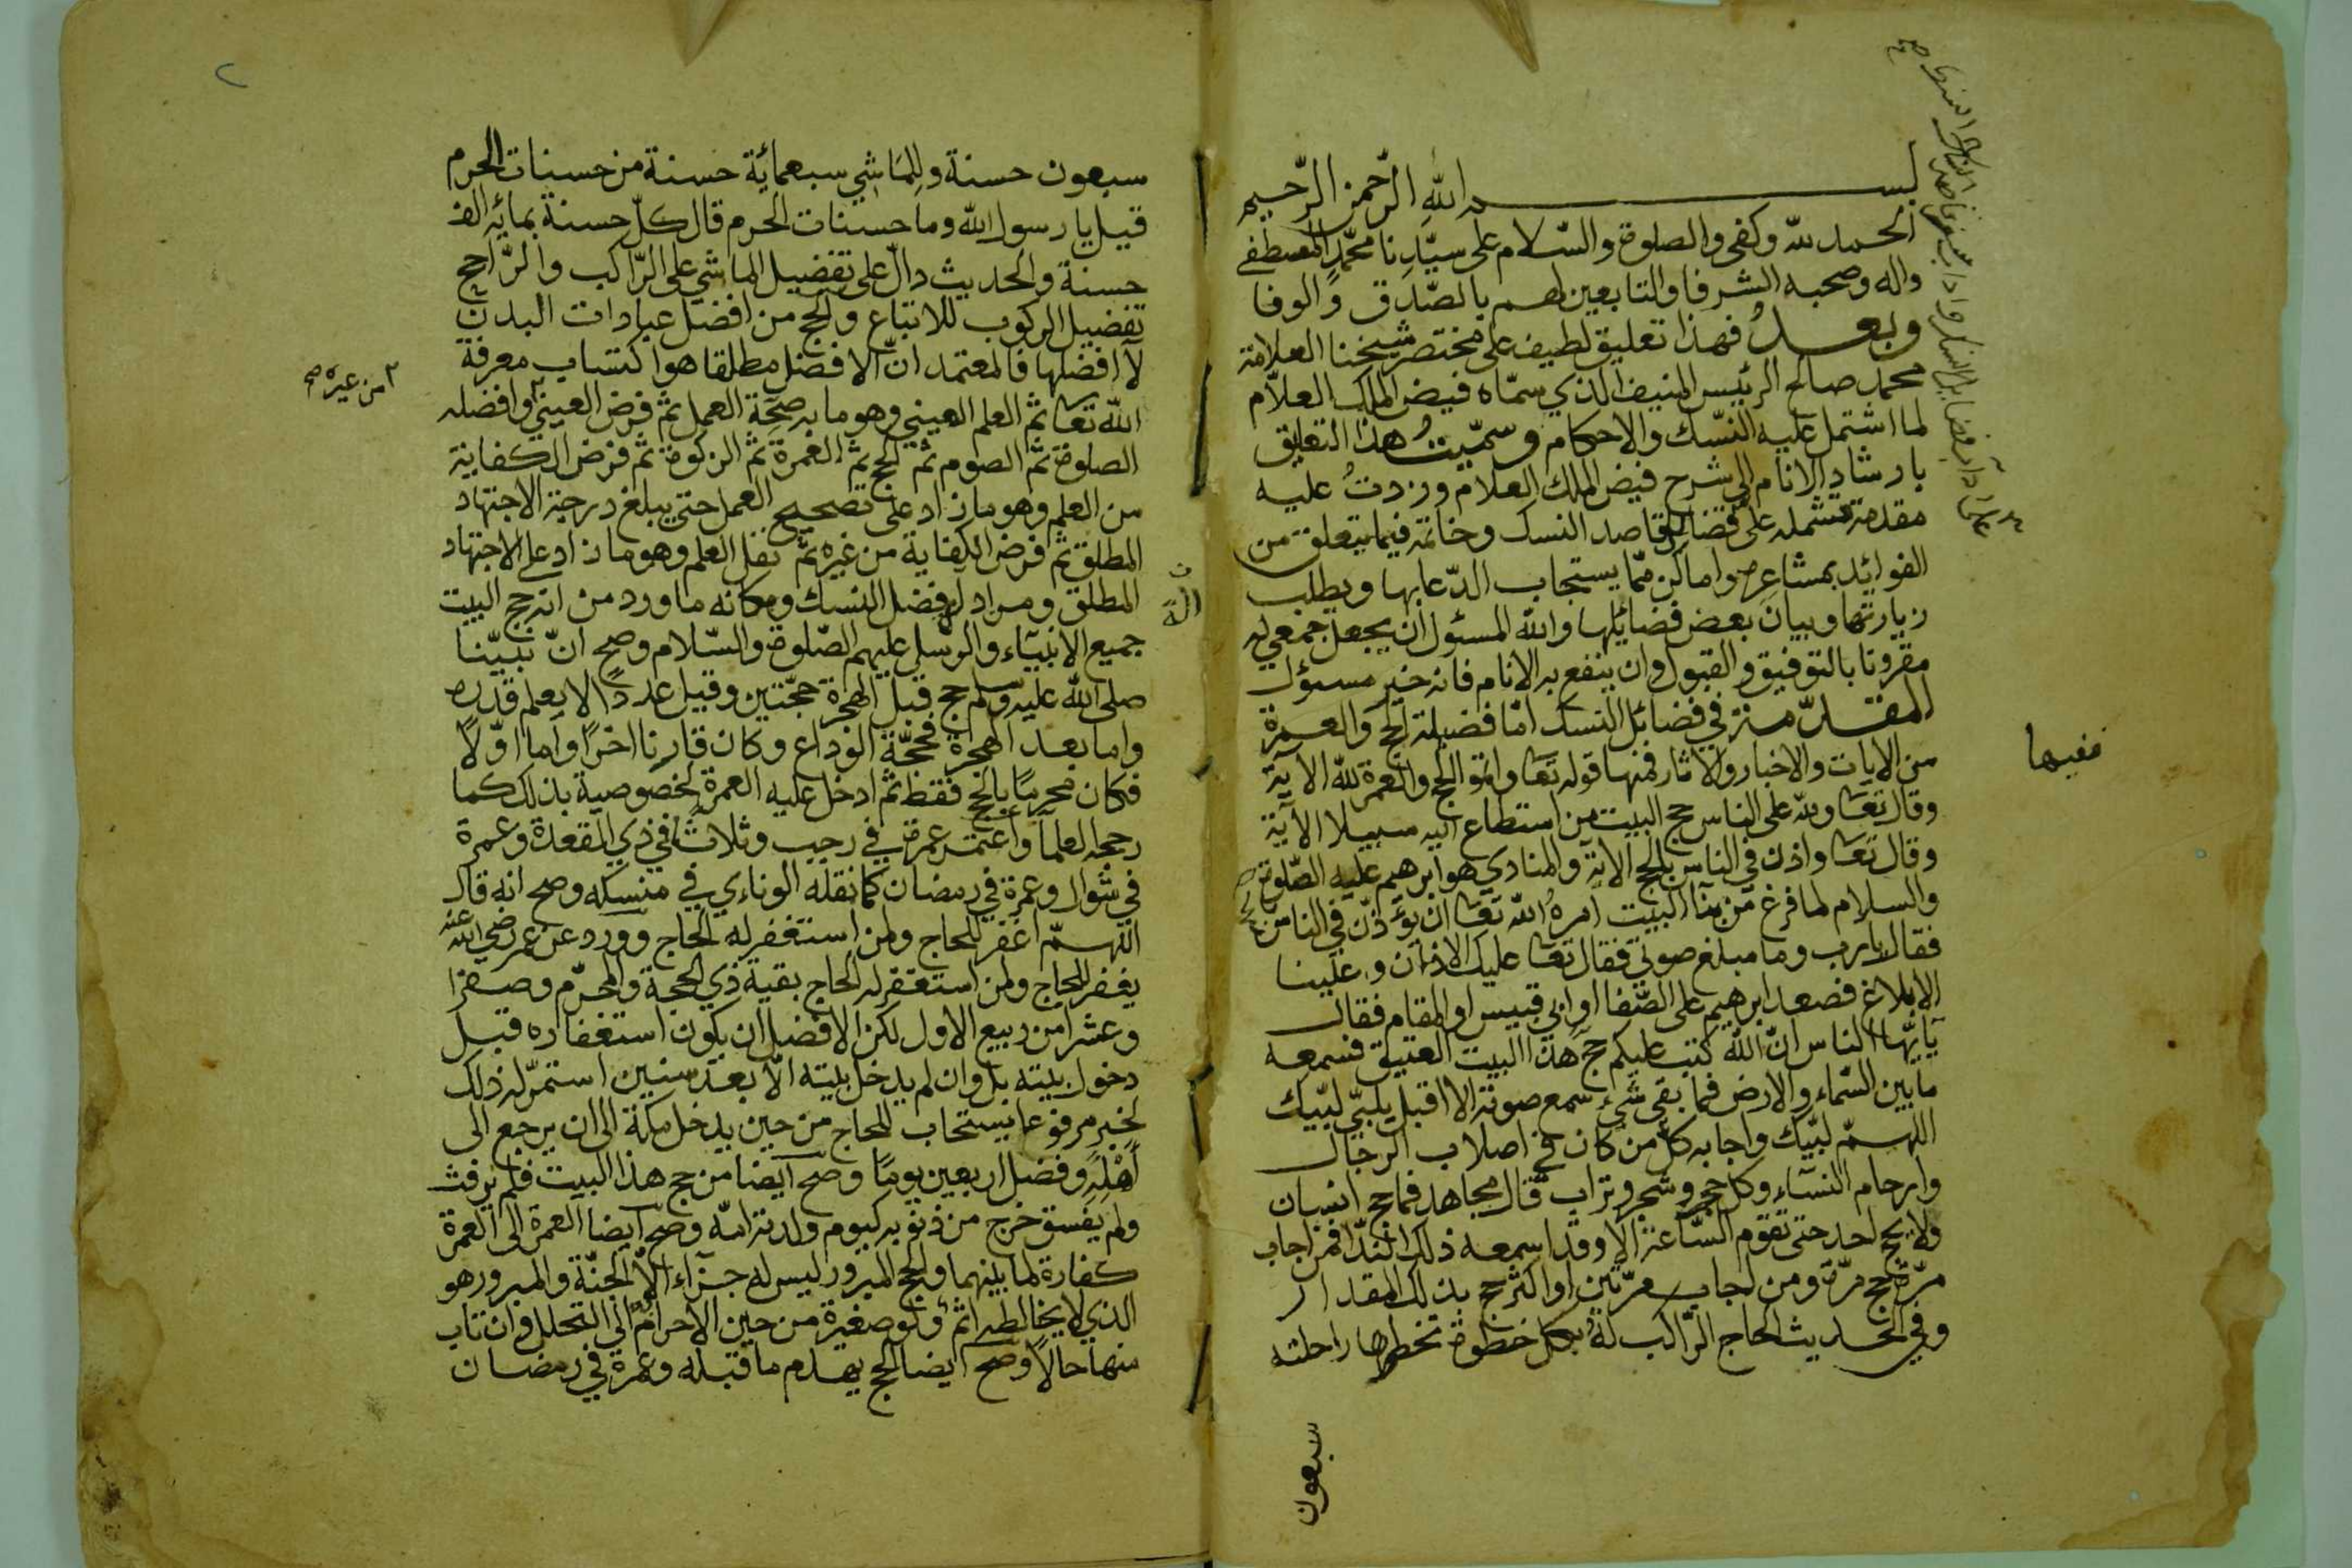 بســـــم الله الرّحمن الرّحيم
الحمد لله وكفى والصلوة والسّلام على سيّدنا محمّد المصطفى
واله وصحبه الشرفا والتابعين لهم بالصّدق والوفا
وبعــد فهذا تعليق لطيف على مختصر شيخنا العلامة
محمد صالح الرئيس المنيف الذي سمّاه فيض الملك العلاّم
لما اشتمل عليه النّسك والاحكام وسمّيتُ هذا التعليق
بارشاد الانام الى شرح فيض الملك العلام وزدتُ عليه
مقدمة مشتمله على فضائل مقاصد النسك وخاتمة فيما يتعلق من
الفوائد بمشاعر واماكن ممّا يستجاب الدّعا بها ويطلب
زيارتها وبيان بعض فضايلها والله المسئول ان يجعل جمعي له
مقرونا بالتوفيق والقبول وان ينفع به الانام فانه خير مسئول
المقدّمة في فضائل النسك امّا فضيلة الحج والعمرة
من الايات والاخبار والاثار فمنها قوله تعا واتمّوا الحج والعمرة لله الآية
وقال تعا ولله على الناس حج البيت من استطاع اليه سبيلا الآية
وقال تعا واذن في الناس بالحج الآية والمنادي هو ابرهيم عليه الصّلوة
والسلام لما فرغ من بنآ البيت امره الله تعا ان يؤذّن في الناس
فقال يارب وما مبلغ صوتي فقال تعا عليك الاذان وعلينا
الابلاغ فصعد ابرهيم على الصّفا او ابي قبيس او المقام فقال
يآيّها الناس انّ الله كتب عليكم حج هذا البيت العتيق فسمعه
مابين السّماء والارض فما بقى شيء سمع صوته الا اقبل يلبّي لبّيك
اللهمّ لبّيك واجابه كلّ من كان في اصلاب الرجال
وارحام النسآء وكل حجر وشجر وتراب قال مجاهد فما حج انسان
ولا يحج احد حتى تقوم السّاعة الا وقد اسمعه ذلك النّدا فمن اجاب
مرّة حج مرّة ومن اجاب مرّتين او اكثر حج بذلك المقدار
وفي الحديث الحاج الرّاكب له بكل خطوة تخطوها راحلته
سبعون
ففيها
سبعون حسنة وللماشي سبعمائة حسنة من حسنات الحرم
قيل يا رسول الله وما حسنات الحرم قال كلّ حسنة بمائة الف
حسنة والحديث دالّ على تفضيل الماشي على الرّاكب والرّاجح
تفضيل الركوب للاتباع والحج من افضل عبادات البدن
لا افضلها فالمعتمد انّ الافضل مطلقا هو اكتساب معرفة
الله تعا ثم العلم العيني وهو ما به صحّة العمل ثم فرض العيني وافضله
الصلوة ثم الصوم ثم الحج ثم العمرة ثم الزكوة ثم فرض الكفاية
من العلم وهو ما زاد على تصحيح العمل حتى يبلغ درجة الاجتهاد
المطلق ثم فرض الكفاية من غيره ثم نفل العلم وهو ما زاد على الاجتهاد
المطلق ومراد فضل النسك ومكانه ما ورد من انه حج البيت
جميع الانبيآء والرّسل عليهم الصّلوة والسّلام وصح انّ نبيّنا
صلى الله عليه وسلم حج قبل الهجرة حجّتين وقيل عددا لا يعلم قدره
واما بعد الهجرة فحجّة الوداع وكان قارنا اخرًا وأما اوّلاً
فكان محرمًا بالحج فقط ثم ادخل عليه العمرة لخصوصية بذلك كما
رجحه العلمآ واعتمر عمرة في رجب وثلاثا في ذي القعدة وعمرة
في شوّال وعمرة في رمضان كما نقله الونادي في منسكه وصح انه قال
اللهمّ اغفر للحاج ولمن استغفر له الحاج وورد عن عمر رضي الله عنه
يغفر للحاج ولمن استغفر له الحاج بقية ذي الحجة والمحرّم وصفرا
وعشرا من ربيع الاول لكن الافضل ان يكون استغفاره قبل
دخول بيته بل وان لم يدخل بيته الاّ بعد سنين استمرّ له ذلك
لخبر مرفوعا يستجاب للحاج من حين يدخل مكة الى ان يرجع الى
اهله وفضل اربعين يومًا وصح ايضا من حج هذا البيت فلم يرفث
ولم يفسق خرج من ذنوبه كيوم ولدته امّه وصحّ ايضا العمرة الى العمرة
كفارة لما بينهما والحج المبرور ليس له جزآء الاّ الجنّة والمبرور هو
الذي لا يخالطه اثم ولو صغيرة من حين الاحرام الى التحلل وان تاب
منها حالاً وصح ايضا الحج يهدم ما قبله وعمرة في رمضان
من غيره صح